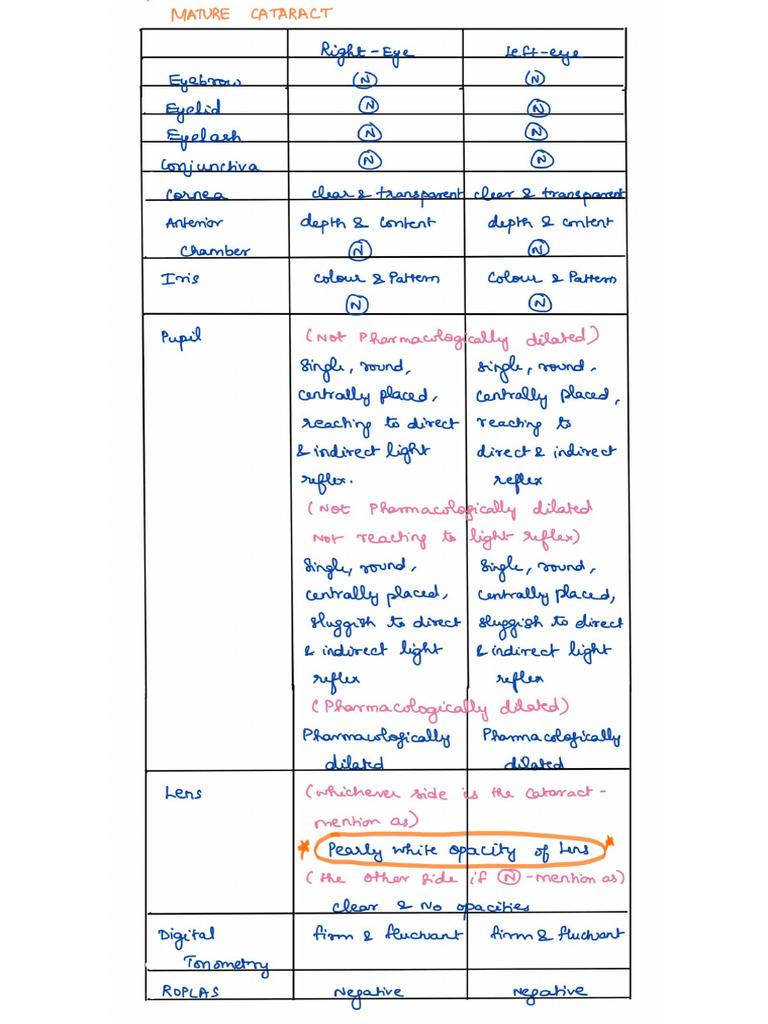 MATURE CATARACT
Right-Eye Left-eye
Eyebrow N N
Eyelid N N
Eyelash N N
Conjunctiva N N
Cornea clear & transparent clear & transparent
Anterior depth & content depth & content
Chamber N N
Iris Colour & Pattern Colour & Pattern
N N
Pupil (Not Pharmacologically dilated)
Single, round, single, round,
centrally placed, centrally placed,
reaching to direct reaching to
& indirect light direct & indirect
reflex. reflex
(Not Pharmacologically dilated
Not reaching to light reflex)
Single, round, Single, round,
centrally placed, centrally placed,
sluggish to direct sluggish to direct
& indirect light & indirect light
reflex reflex
(Pharmacologically dilated)
Pharmacologically Pharmacologically
dilated dilated
Lens (whichever side is the cataract-
mention as)
* Pearly white opacity of Lens *
(the other side if N -mention as)
clear & No opacities
Digital firm & fluctuant firm & fluctuant
Tonometry
ROPLAS Negative Negative